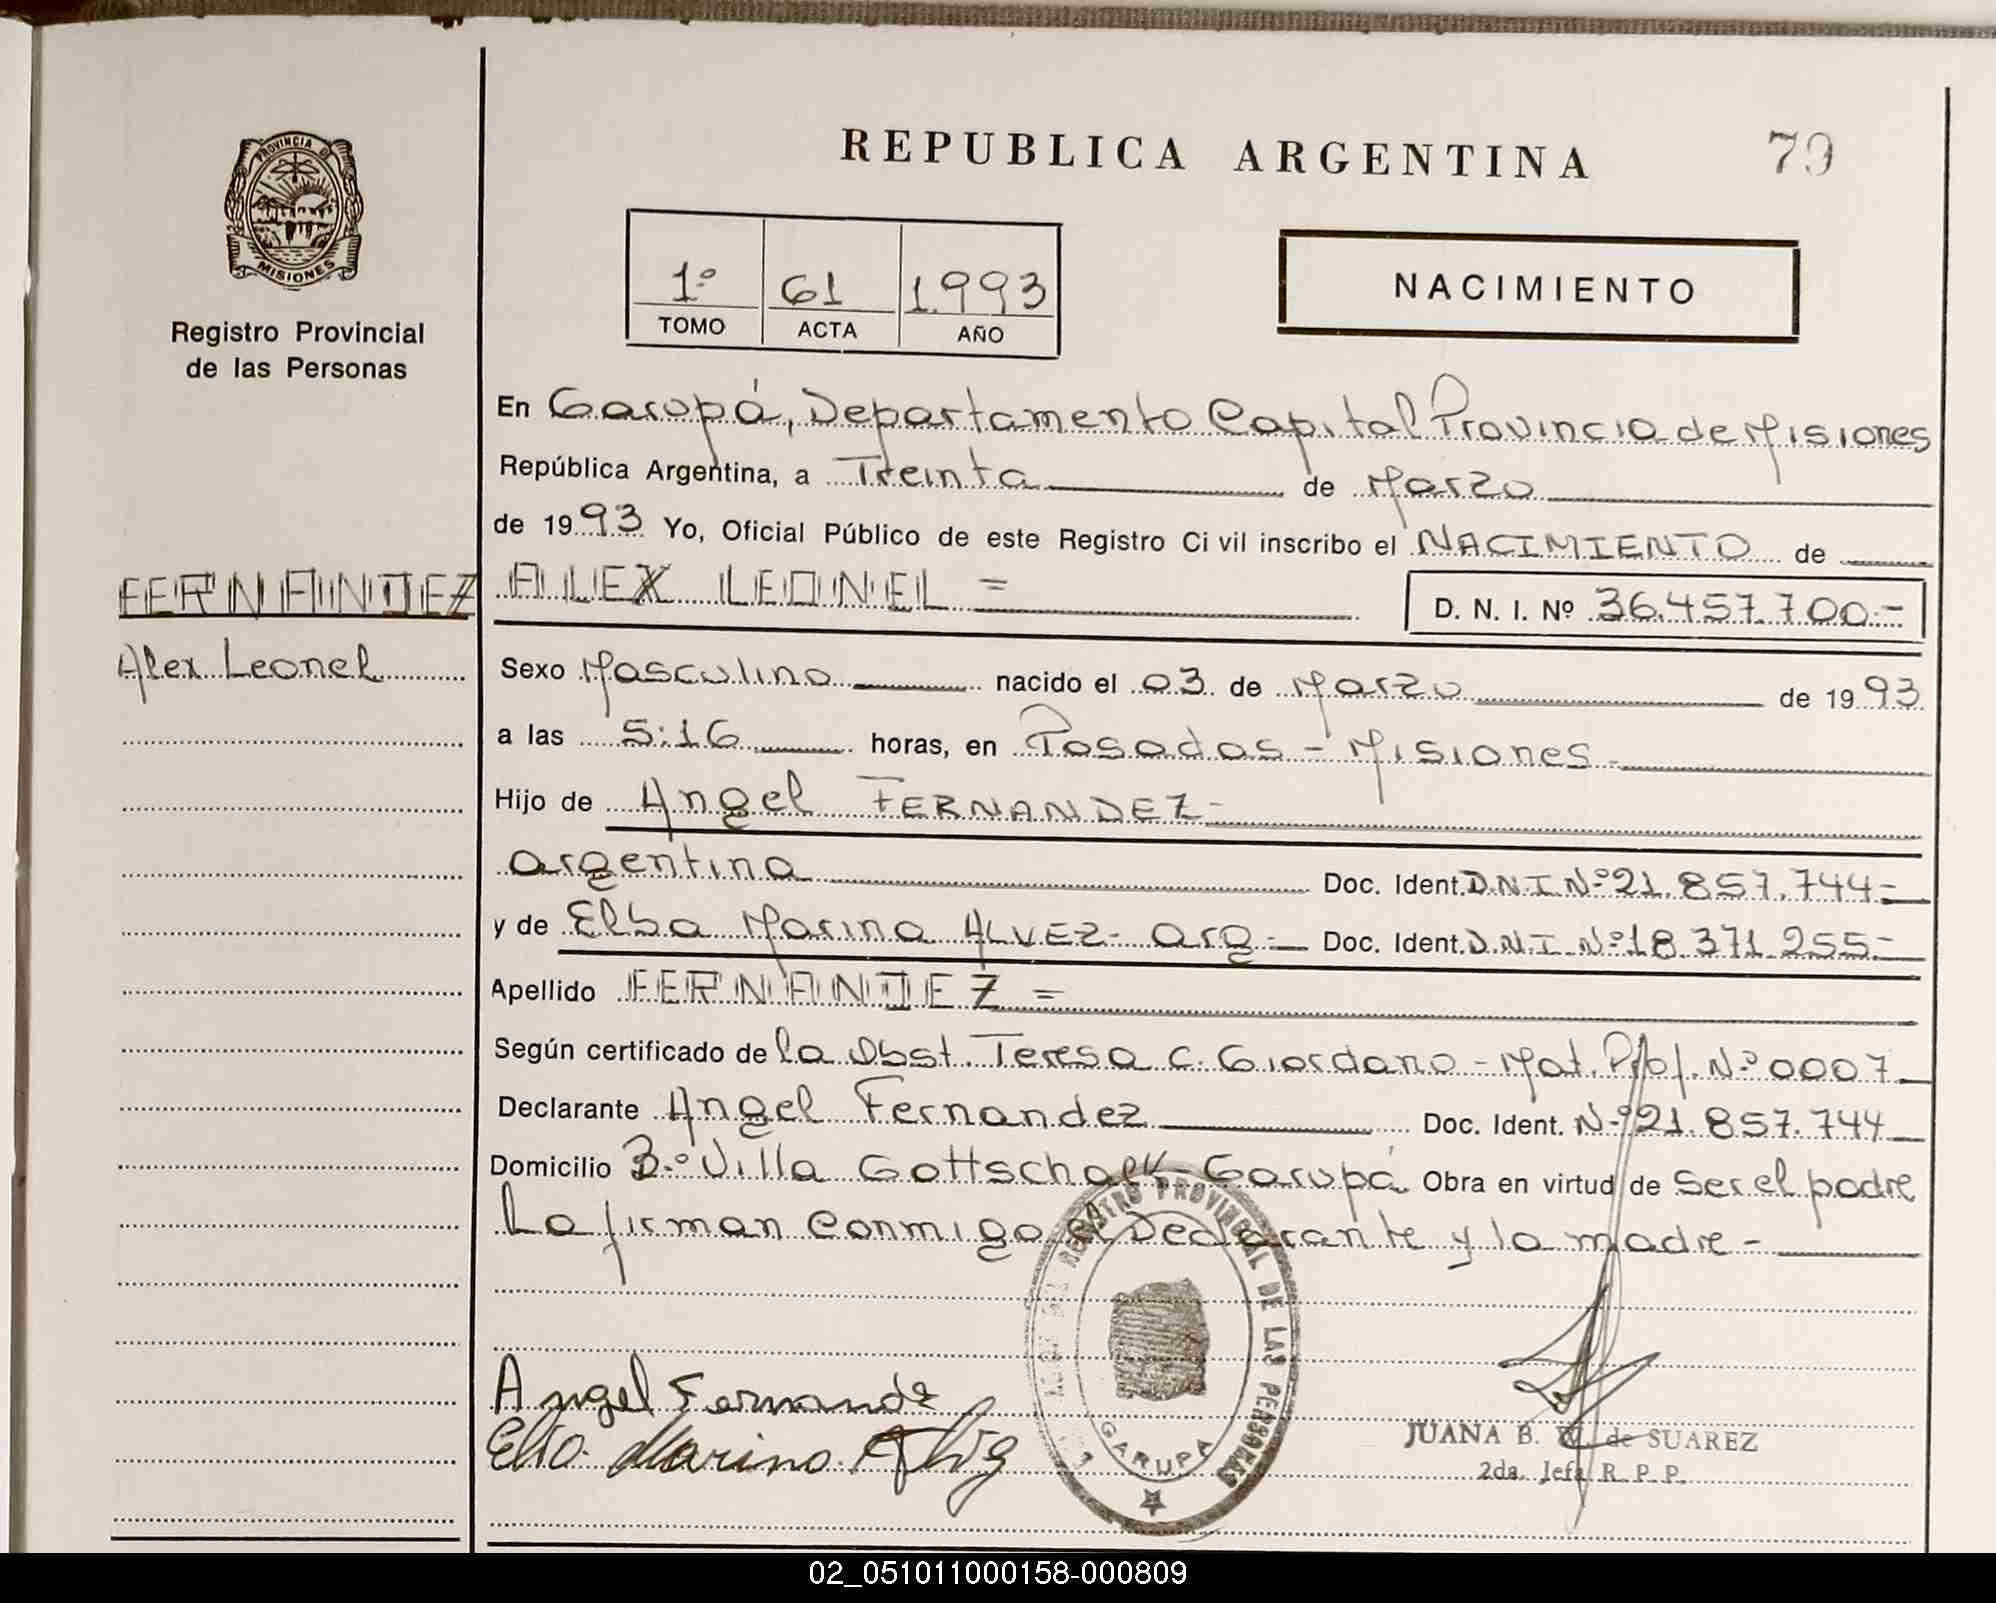 REPUBLICA ARGENTINA
79
PROVINCIA DE
MISIONES
Registro Provincial
de las Personas
1º 61 1.993
TOMO ACTA AÑO
NACIMIENTO
En Garupá, Departamento Capital Provincia de Misiones
República Argentina, a Treinta de Marzo
de 1993 Yo, Oficial Público de este Registro Civil inscribo el NACIMIENTO de
FERNANDEZ ALEX LEONEL = D. N. I. Nº 36.457.700.-
Alex Leonel
Sexo Masculino nacido el 03 de Marzo de 1993
a las 5:16 horas, en Posadas - Misiones-
Hijo de Angel FERNANDEZ-
argentina Doc. Ident. D.N.I.Nº 21.857.744-
y de Elba Marina ALVEZ- arg- Doc. Ident. D.N.I.Nº 18.371.255-
Apellido FERNANDEZ =
Según certificado de la Obst. Teresa C. Giordano - Mat. Prof. Nº 0007
Declarante Angel Fernandez Doc. Ident. Nº 21.857.744
Domicilio Bº Villa Gottschalk-Garupá Obra en virtud de Ser el padre
La firman conmigo el Declarante y la madre-
REGISTRO PROVINCIAL DE LAS PERSONAS
GARUPA
Angel Fernande
JUANA B. de SUAREZ
2da. Jefa R. P. P.
02_051011000158-000809